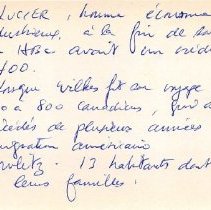 LUCIER, homme économe
industrieux, à la fin de sa
HBC avait un crédit
400.
orsque Wilkes fit son voyage
0 à 800 Canadiens,
cédés de plusieurs années
migration américaine
13 habitants dont
leurs familles.